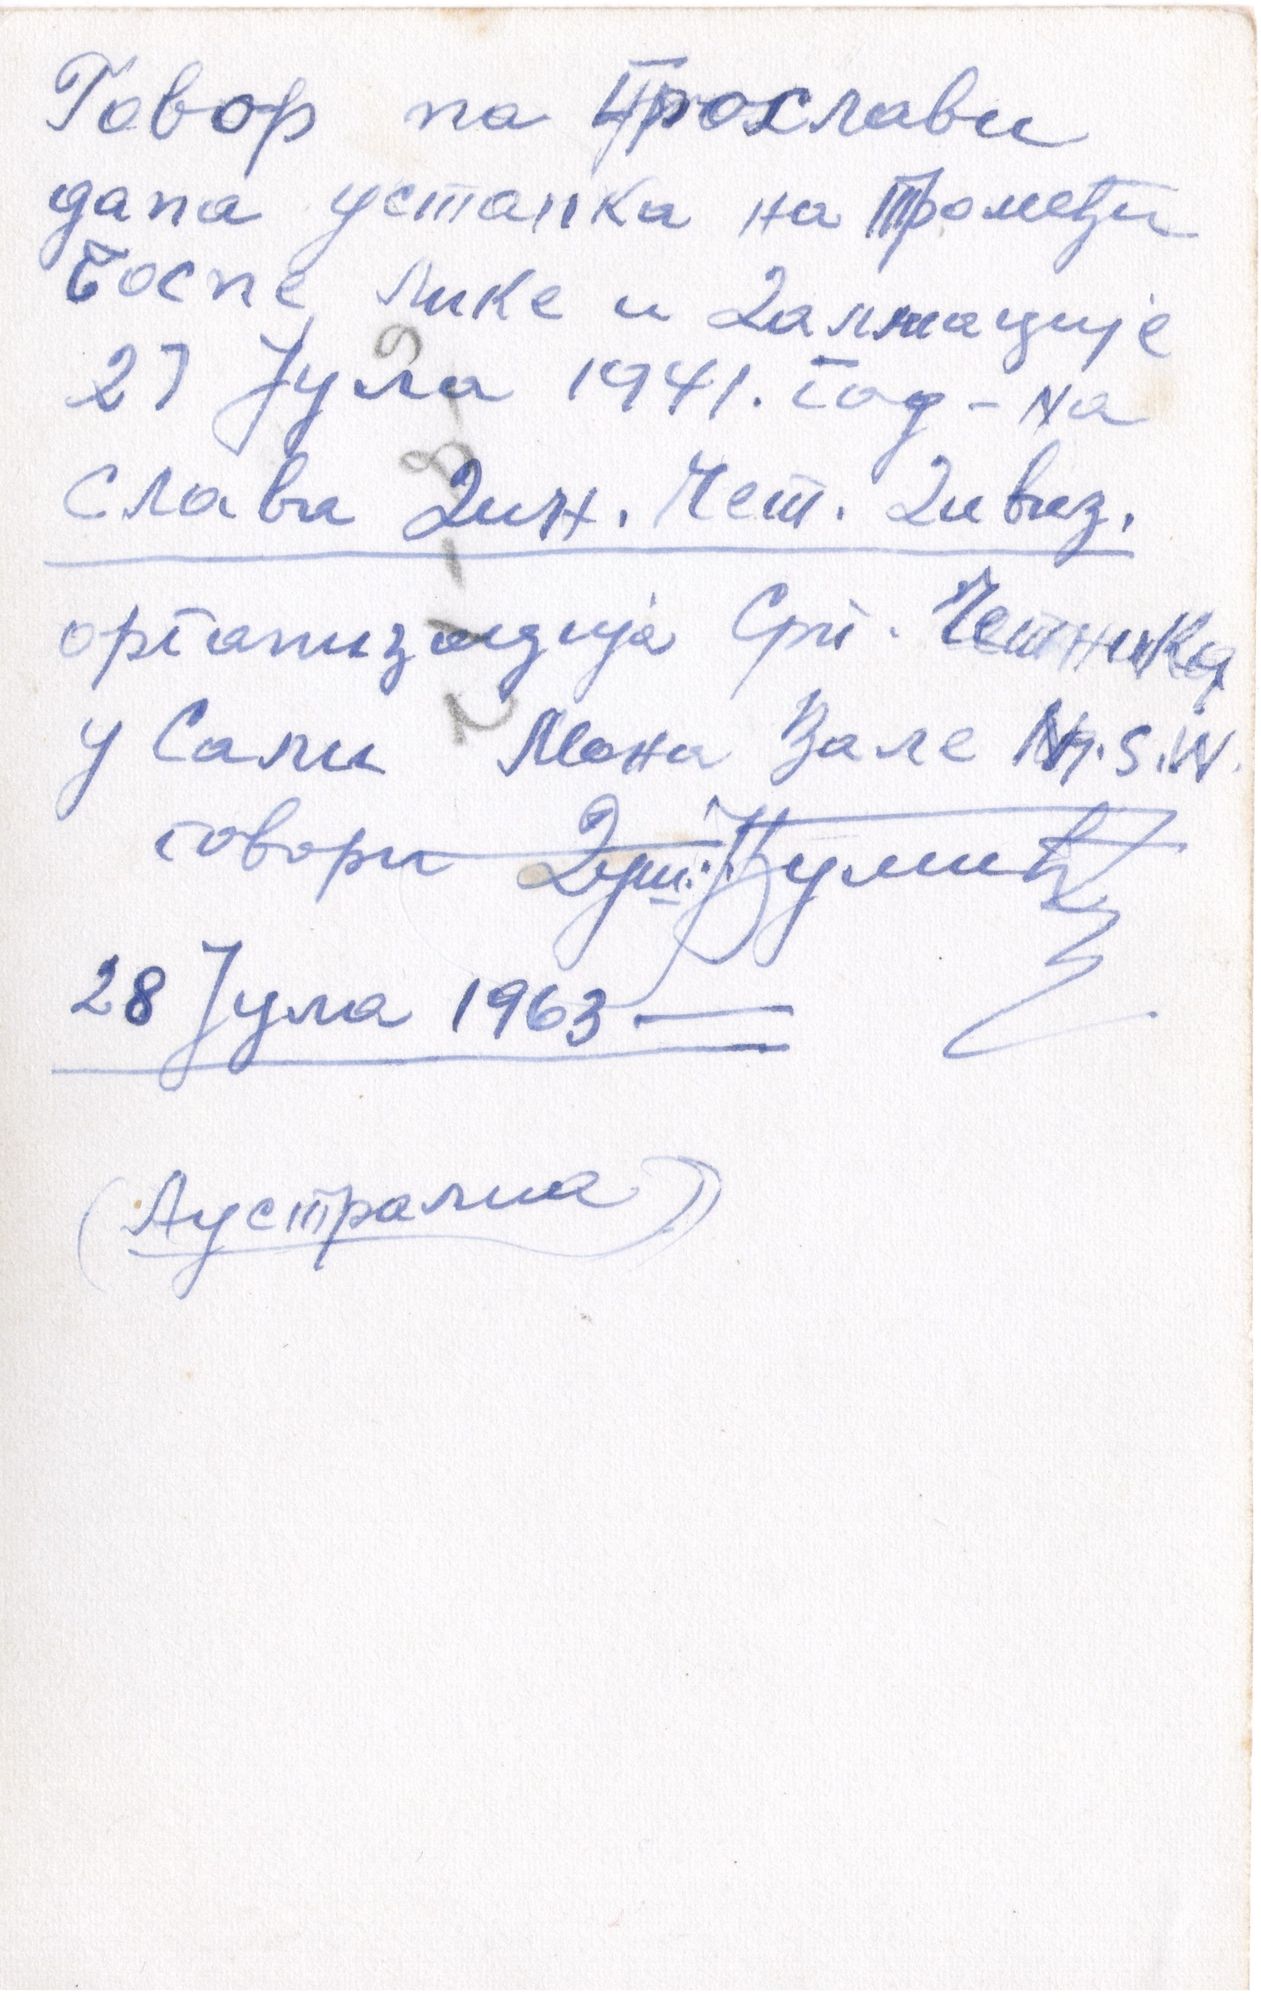 Говор на Прослави
дана устанка на Тромеђи
Босне Лике и Далмације
27 Јула 1941. год - на
слава Дин. Чет. Дивиз.
организација Срп. Четника
у Сали Мона Вале N.S.W.
говори Душ.
28 Јула 1963
(Аустралиа)